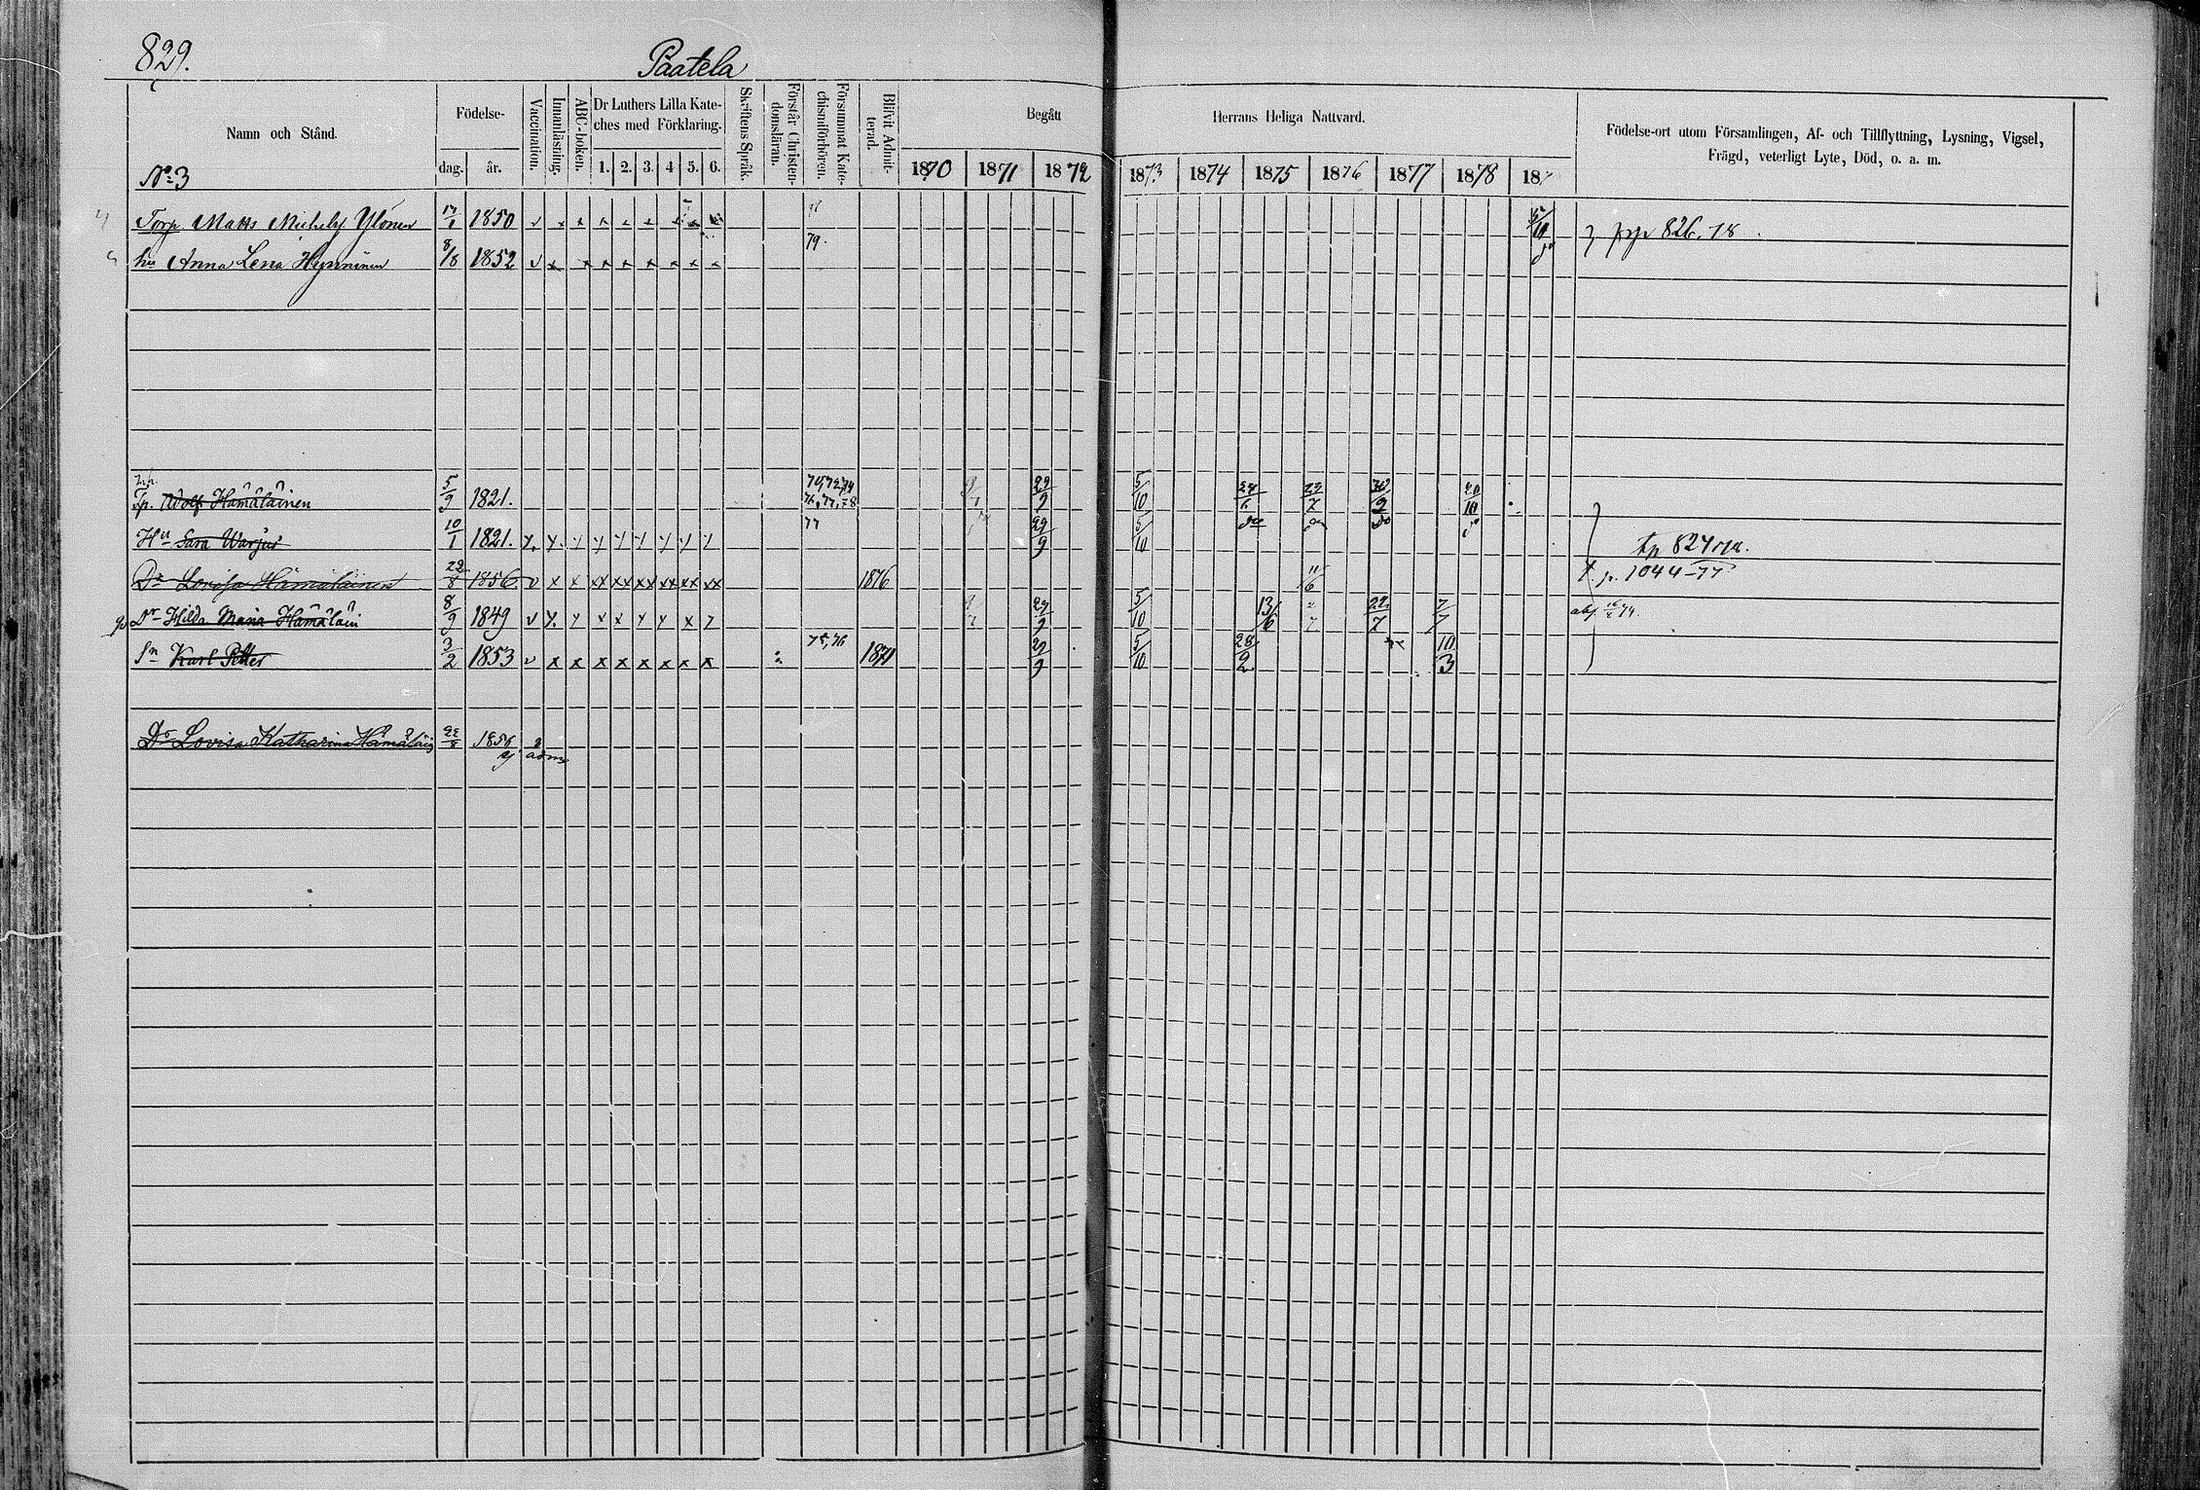 829.
Paatela
Namn och Stånd.
Födelse-
dag. år.
Vaccination.
Innanläsning.
ABC-boken.
Dr Luthers Lilla Kate-
ches med Förklaring.
1. 2. 3. 4 5. 6.
Skriftens Språk.
Förstår Christen-
domsläran.
Försummat Kate-
chismiförhören.
Blifvit Admit-
terad.
Begått Herrans Heliga Nattvard.
1870 1871 1872 1873 1874 1875 1876 1877 1878 187
Födelse-ort utom Församlingen, Af- och Tillflyttning, Lysning, Vigsel,
Frägd, veterligt Lyte, Död, o. a. m.
No 3
Torp Matts Ylönen 1850 826. 18
hu Anna Lena Hynninen 8/8 1852 79.
Tp. Adolf Hämäläinen 5/9 1821. 76, 77, 78 29/9 5/10 20/10
Hu Sara Warjus 10/1 1821. 77 29/9 5/10
Dr Lovisa Hämäläinen 22/8 1856 1876 p. 1044-77
Dr Hilda Maria Hämäläin 8/9 1849 29/9 5/10 13/6 22/7 7/7
Sn Karl Petter 3/2 1853 75, 76 29/9 5/10 28/2 10/3
Dr Lovisa Katharina Hämäläin 22/8 1856
ej adm